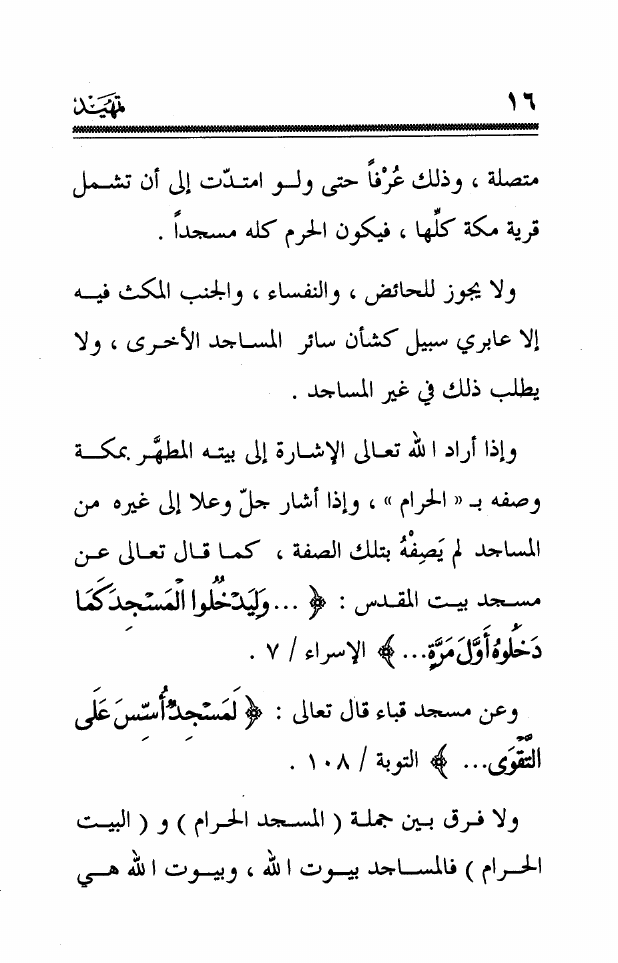 ١٦ تمهيد
متصلة ، وذلك عُرْفاً حتى ولو امتدّت إلى أن تشمل
قرية مكة كلِّها ، فيكون الحرم كله مسجداً .
ولا يجوز للحائض ، والنفساء ، والجنب المكث فيه
إلا عابري سبيل كشأن سائر المساجد الأخرى ، ولا
يطلب ذلك في غير المساجد .
وإذا أراد الله تعالى الإشارة إلى بيته المطهَّر بمكة
وصفه بـ « الحرام » ، وإذا أشار جلّ وعلا إلى غيره من
المساجد لم يَصِفْهُ بتلك الصفة ، كما قال تعالى عن
مسجد بيت المقدس : ﴿ ... وَلِيَدْخُلُوا الْمَسْجِدَ كَمَا
دَخَلُوهُ أَوَّلَ مَرَّةٍ... ﴾ الإسراء / ٧ .
وعن مسجد قباء قال تعالى : ﴿ لَمَسْجِدٌ أُسِّسَ عَلَى
التَّقْوَى... ﴾ التوبة / ١٠٨ .
ولا فرق بين جملة ( المسجد الحرام ) و ( البيت
الحرام ) فالمساجد بيوت الله ، وبيوت الله هي